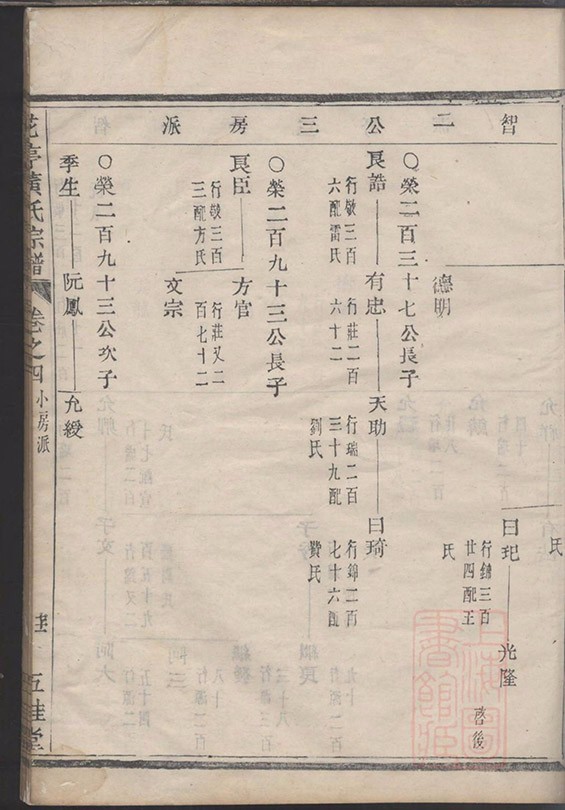 智二公三房派
氏
曰玘——光隆
行鏽三百
廿四配王
氏
啓後
德明
○榮二百三十七公長子
良誥——有忠——天助——曰琦
行敬三百
六配雷氏
行莊二百
六十二
行瑞二百
三十九配
劉氏
行錦二百
七十六配
費氏
○榮二百九十三公長子
良臣——方官
行敬三百
三配方氏
行莊又二
百七十二
文宗
○榮二百九十三公次子
季生——阮鳳——允綬
花亭黃氏宗譜
卷之四
小房派
五桂堂